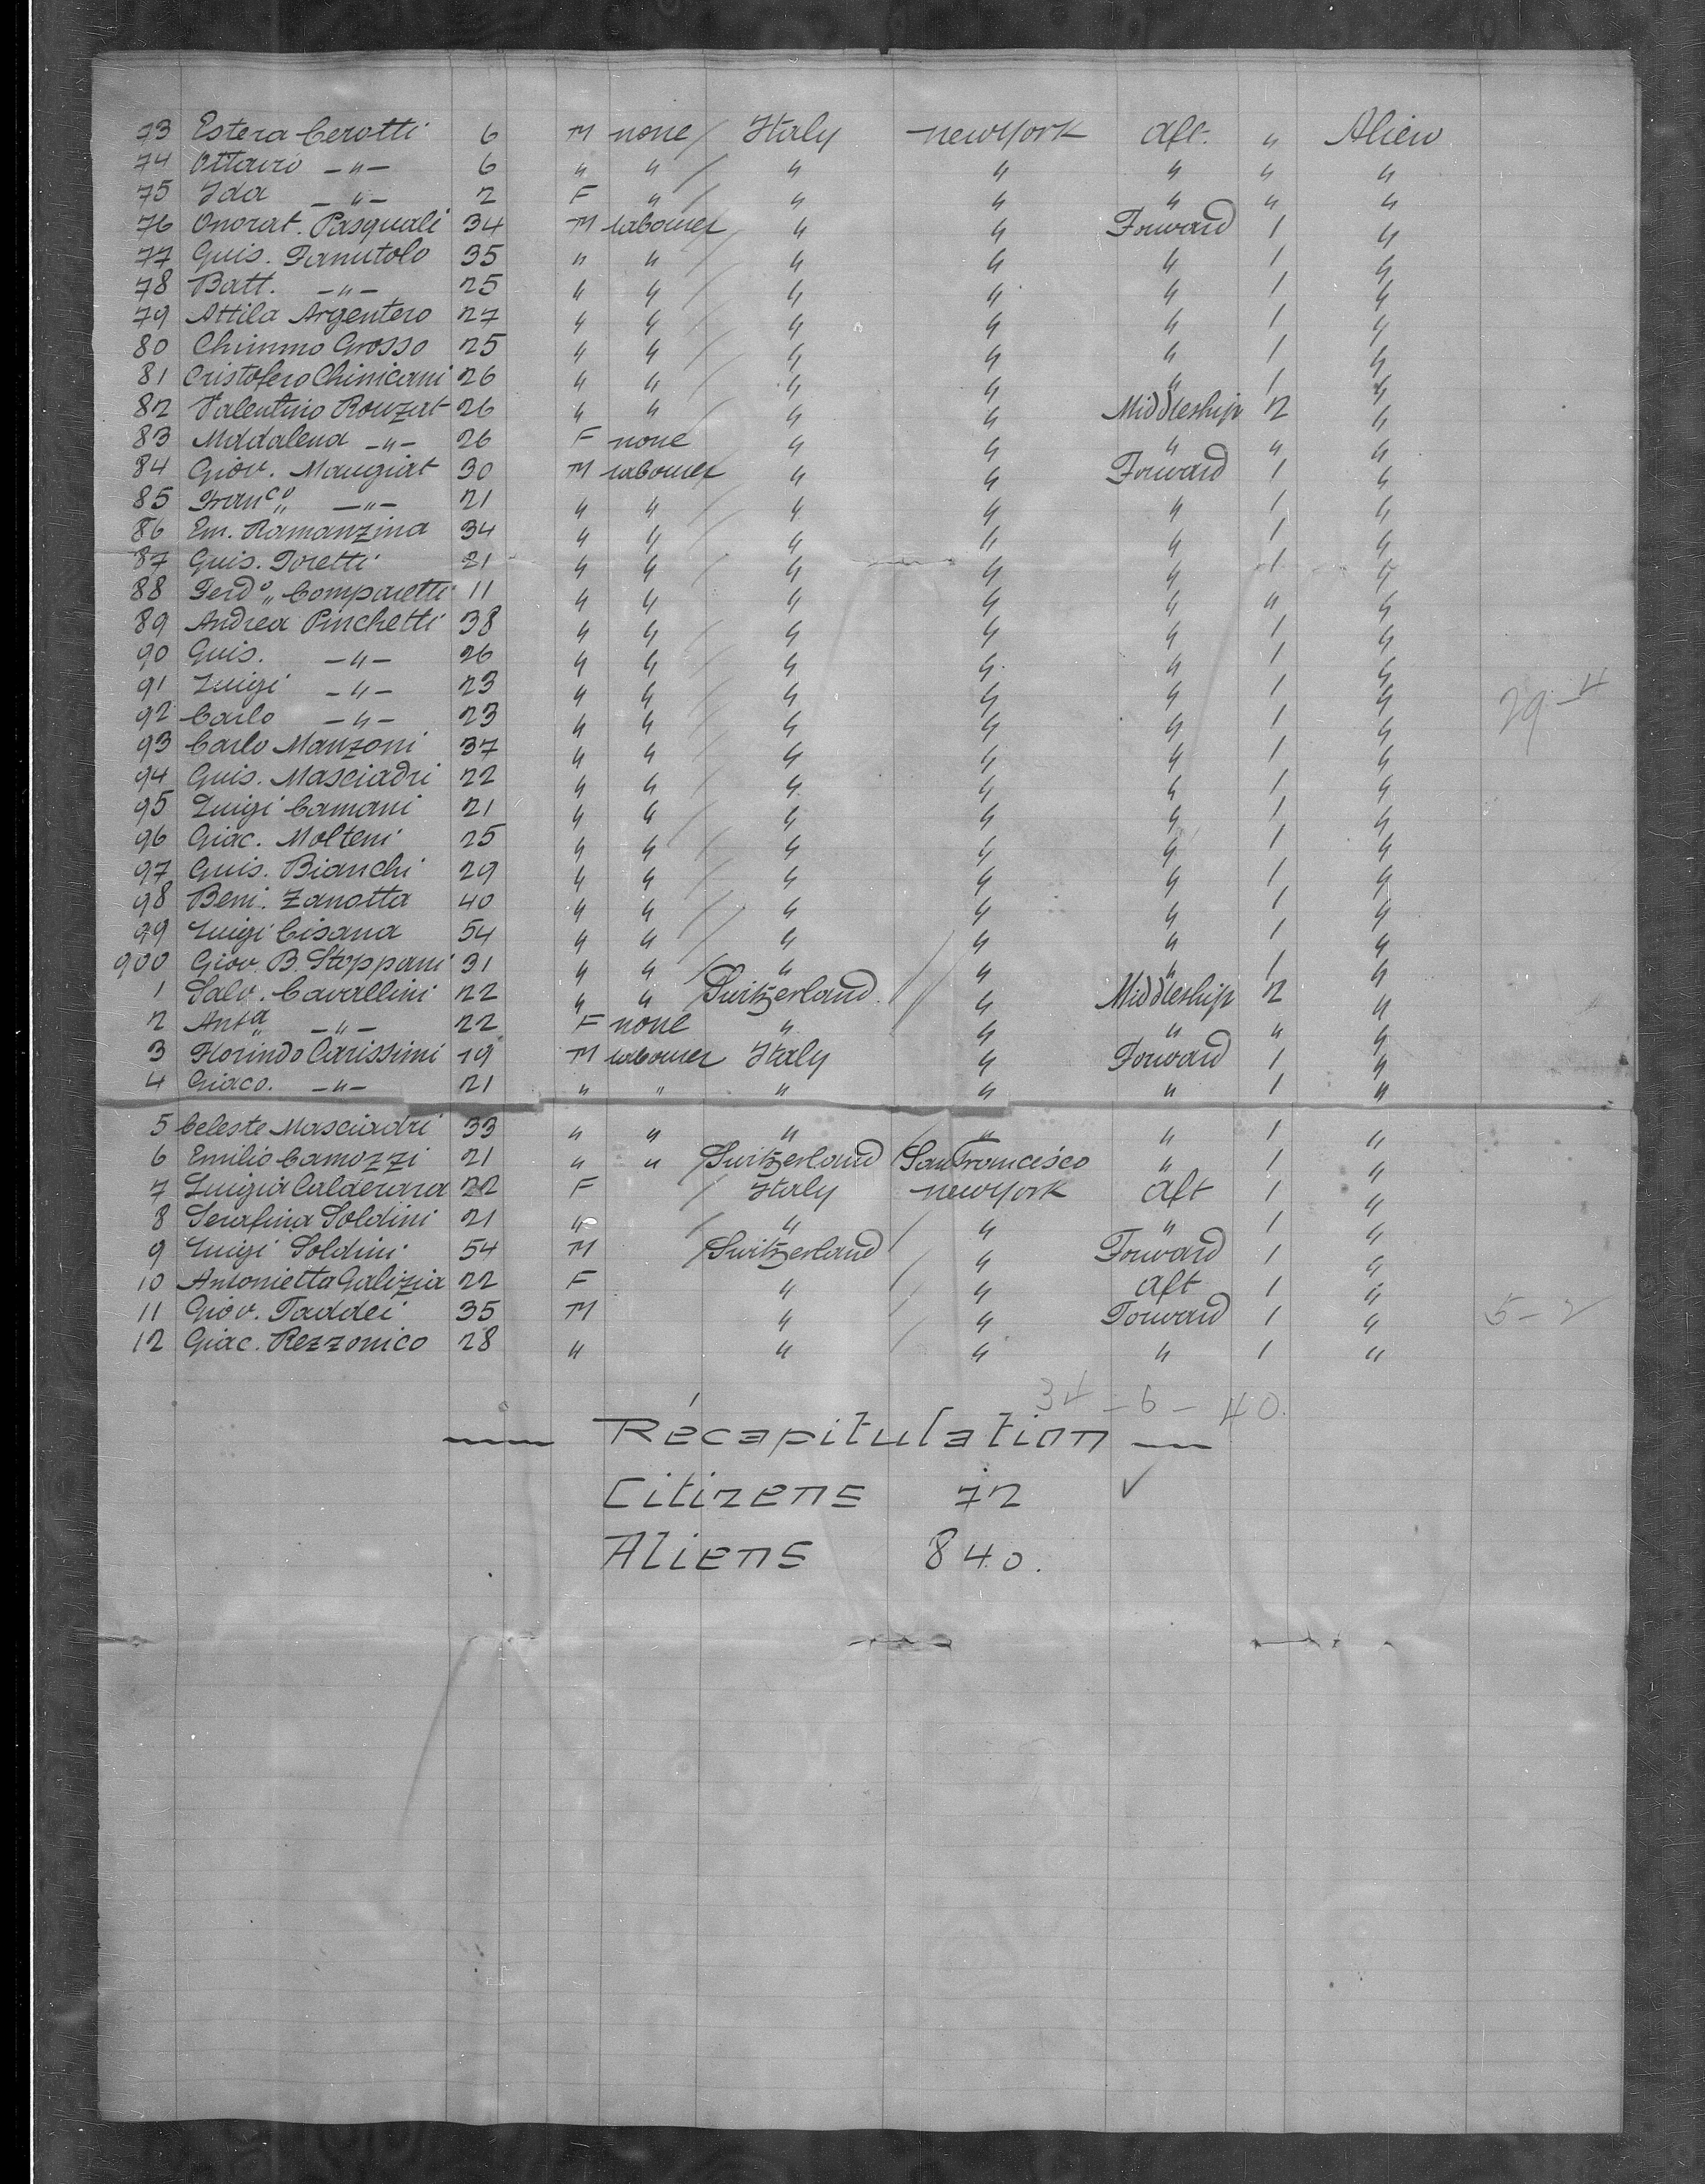 73 Estera Cerotti 6 M none / Italy newyork aft. " Alien
74 Ottavio -"- 6 " " / " " " " "
75 Ida -"- 2 F " / " " " " "
76 Onorat. Pasquali 34 M labourer " " Forward 1 "
77 Guis. Fanutolo 35 " " / " " " 1 "
78 Batt. -"- 25 " " / " " " 1 "
79 Attila Argentero 27 " " / " " " 1 "
80 Chimmo Grosso 25 " " / " " " 1 "
81 Cristofero Chinicani 26 " " / " " " 1 "
82 Valentino Rouzat 26 " " / " " Middleship 2 "
83 Maddalena -"- 26 F none " " " " "
84 Giov. Maugiat 30 M labourer " " Forward 1 "
85 Franco " -"- 21 " " / " " " 1 "
86 Em. Ramanzina 34 " " / " " " 1 "
87 Guis. Toretti 21 " " / " " " 1 "
88 Ferdo " Comparetti 11 " " / " " " " "
89 Andrea Pinchetti 38 " " / " " " 1 "
90 Guis. -"- 26 " " / " " " 1 "
91 Luigi -"- 23 " " / " " " 1 " 29 - 4
92 Carlo -"- 23 " " / " " " 1 "
93 Carlo Manzoni 37 " " / " " " 1 "
94 Guis. Masciadri 22 " " / " " " 1 "
95 Luigi Camani 21 " " / " " " 1 "
96 Giac. Molteni 25 " " / " " " 1 "
97 Guis. Bianchi 29 " " / " " " 1 "
98 Beni. Zanotta 40 " " / " " " 1 "
99 Luigi Cisana 54 " " / " " " 1 "
900 Giov. B. Stoppani 31 " " / " / " " 1 "
1 Salv. Cavallini 22 " " Switzerland. / " Middleship 2 "
2 Anta " -"- 22 F none " " " " "
3 Florindo Carissimi 19 M labourer Italy " Forward 1 "
4 Giaco. -"- 21 " " " " " 1 "
5 Celeste Masciadri 33 " " " / " " 1 "
6 Emilio Camozzi 21 " " / Switzerland / San Francesco " 1 "
7 Luigia Calderara 22 F / Italy newyork aft 1 "
8 Serafina Soldini 21 " / " / " " 1 "
9 Luigi Soldini 54 M / Switzerland / " Forward 1 "
10 Antonietta Galizia 22 F " / " aft 1 "
11 Giov. Taddei 35 M " / " Forward 1 " 5 - 2
12 Giac. Rezzonico 28 " " / " " 1 "
34 - 6 - 40.
Récapitulation
Citizens 72 ✓
Aliens 840.